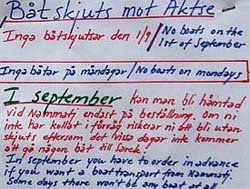 Båtskjuts mot Aktse
Inga båtskjutsar den 1/9 / No boats on the
1st of September
Inga båtar på måndagar / No boats on mondays
I september kan man bli hämtad
vid Nammatj endast på beställning. Om ni
inte har kollat i förväg riskerar ni att bli utan
skjuts eftersom det vissa dagar inte kommer
att gå någon båt till Sarek!
In september you have to order in advance
if you want a boat transport from Nammatj.
Some days there won't be any boat at all!